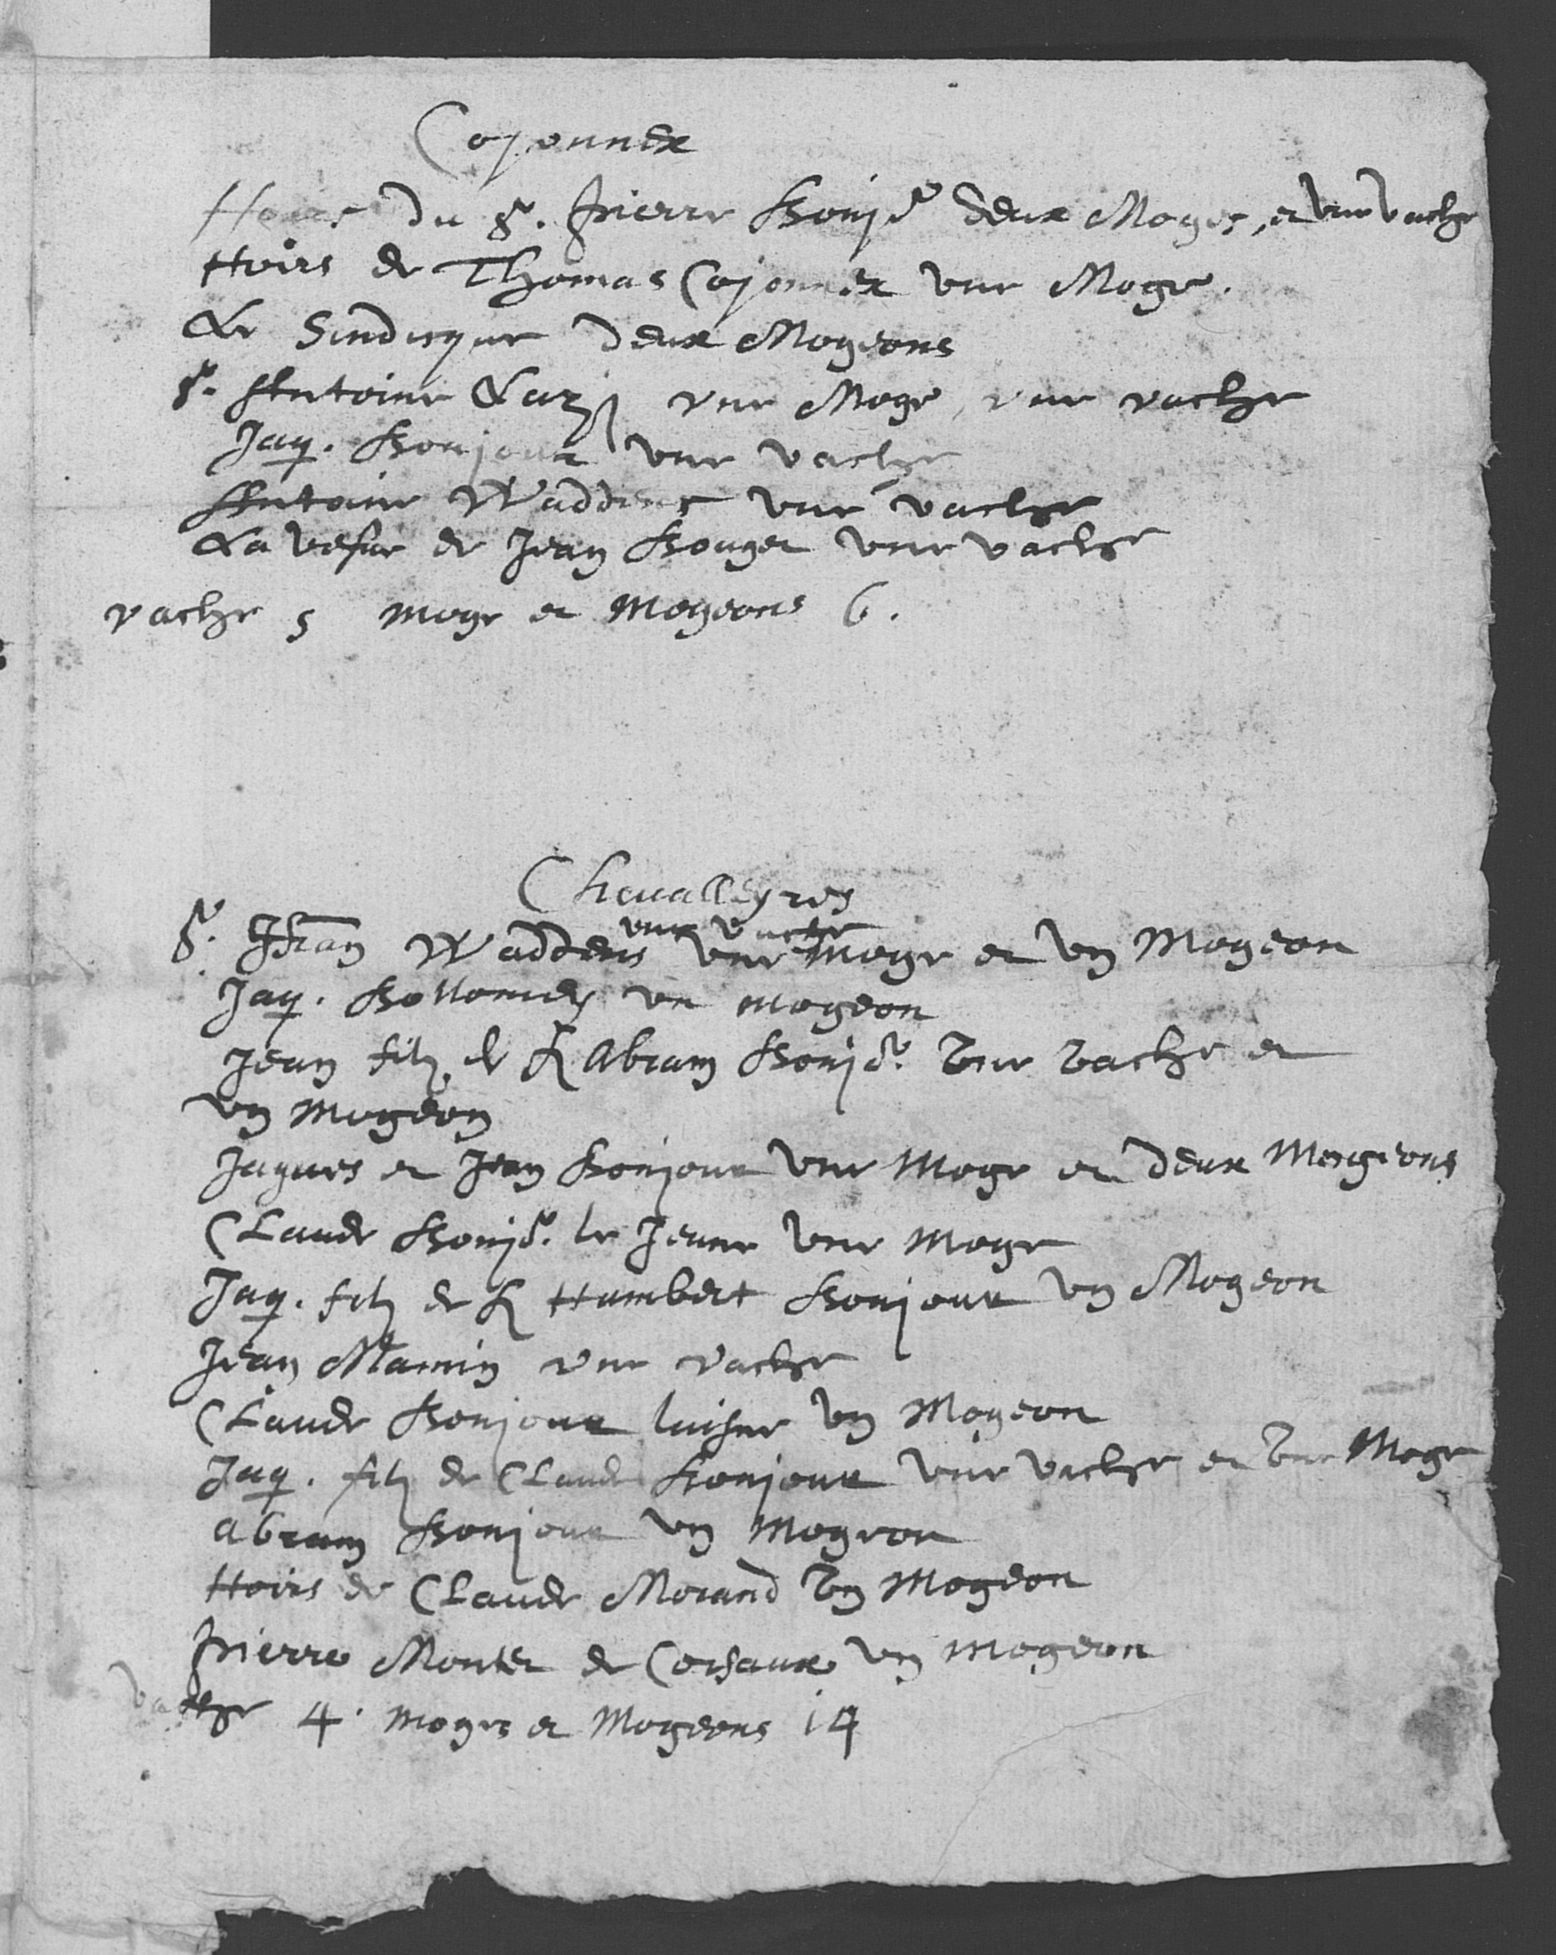 Cojonnex
Hoirs du Sr. Pierre Bonjr deux Moges, et vne vache
Hoirs de Thomas Cojonnex vne Moge.
Le Sindicque deux Mogeons
Sr. Antoine vne Moge, vne vache
Jaq. Bonjour vne vache
Antoine Waddens vne vache
La vefue de Jean Bouget vne vache
vache 5 moge et Mogeons 6.
Cheualleyres
vne vache
Sr. Jean Waddens vne Moge et vn Mogeon
Jaq. vn mogeon
Jean filz de Abram Bonjr. vne vache et
vn mogeon
Jaques et Jean Bonjour vne Moge et deux Mogeons
Claude Bonjr. le Jeune vne moge
Jaq. filz de Humbert Bonjour vn Mogeon
Jean Mamin vne vache
Claude Bonjour laisne vn Mogeon
Jaq. filz de Claude Bonjour vne vache et vne Moge
Abram Bonjour vn Mogeon
Hoirs de Claude Morand vn Mogeon
Pierre Montet de Corsaux vn mogeon
vache 4. moges et Mogeons 14